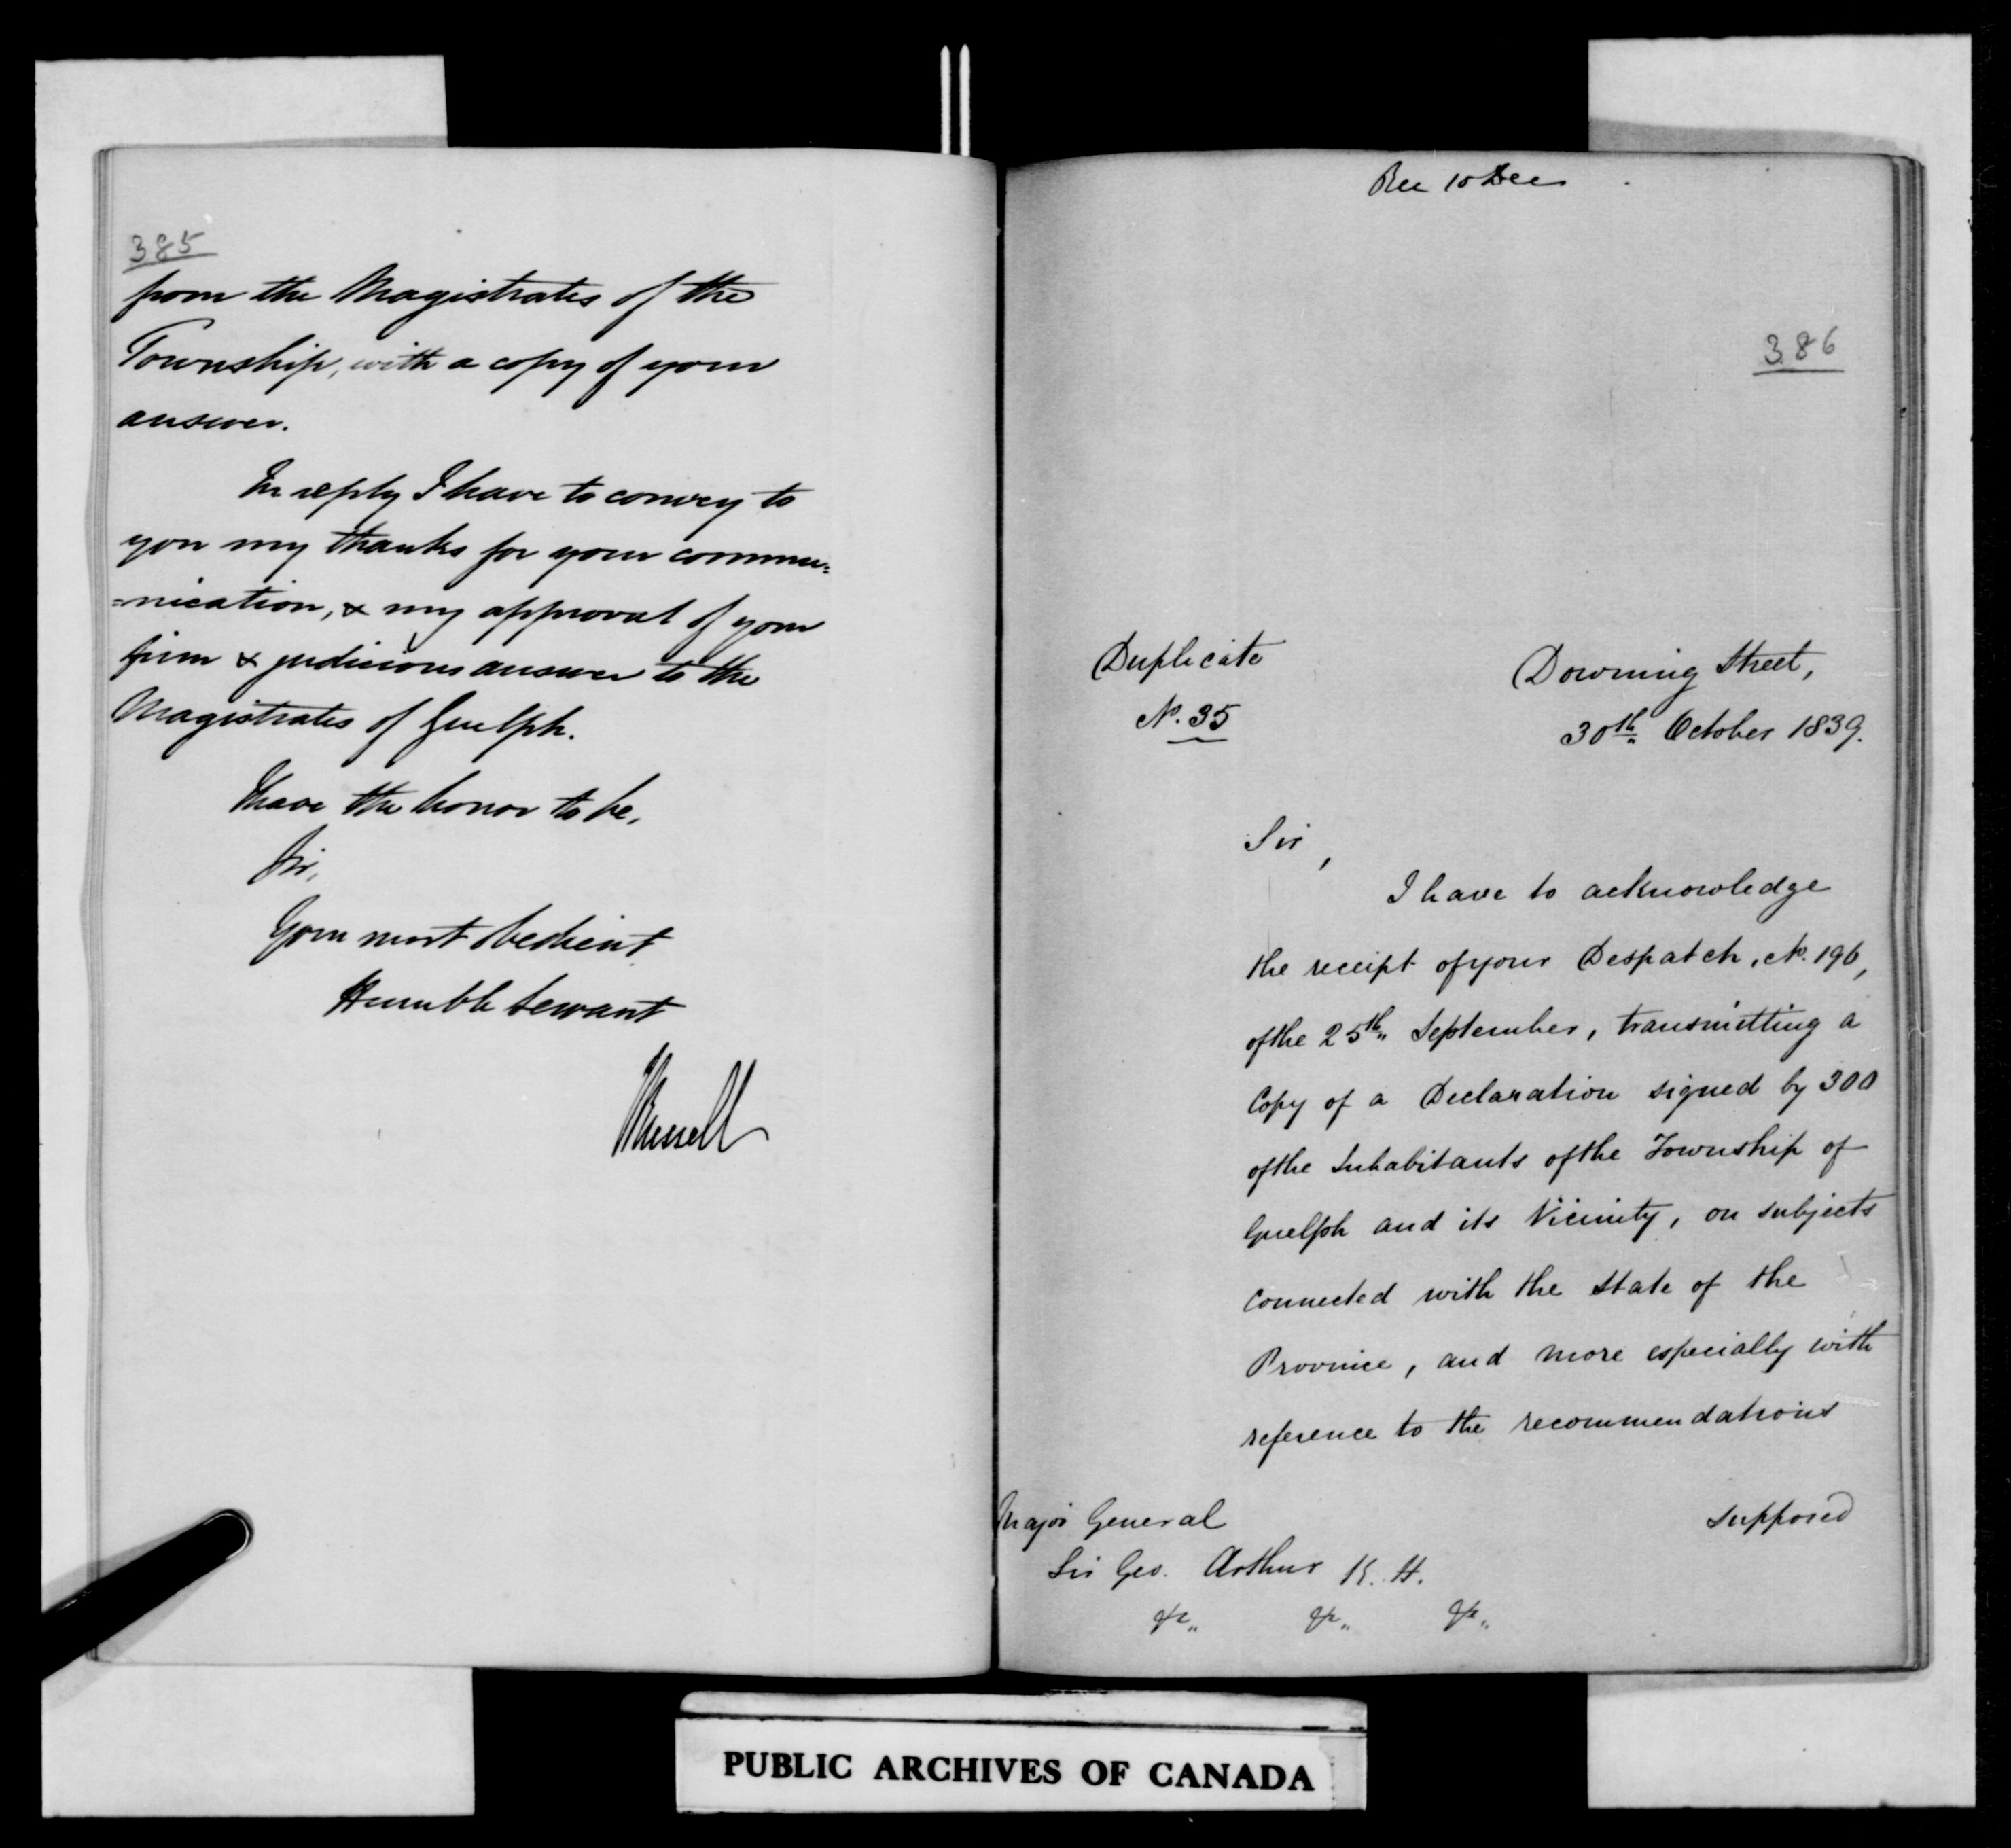 385
from the Magistrates of the
Township, with a copy of your
answer.
In reply I have to convey to
you my thanks for your commu=
=nication, & my approval of your
firm & judicious answer to the
Magistrates of Guelph.
I have the honor to be,
Sir,
Your most obedient
Humble Servant
J Russell
Rec 10 Dec
386
Duplicate
No. 35
Downing Street,
30th October 1839.
Sir,
I have to acknowledge
the receipt of your Despatch, No. 196,
of the 25th September, transmitting a
Copy of a Declaration signed by 300
of the Inhabitants of the Township of
Guelph and its Vicinity, on subjects
connected with the state of the
Province, and more especially with
reference to the recommendations
supposed
Major General
Sir Geo. Arthur K. H.
&c. &c. &c.
PUBLIC ARCHIVES OF CANADA